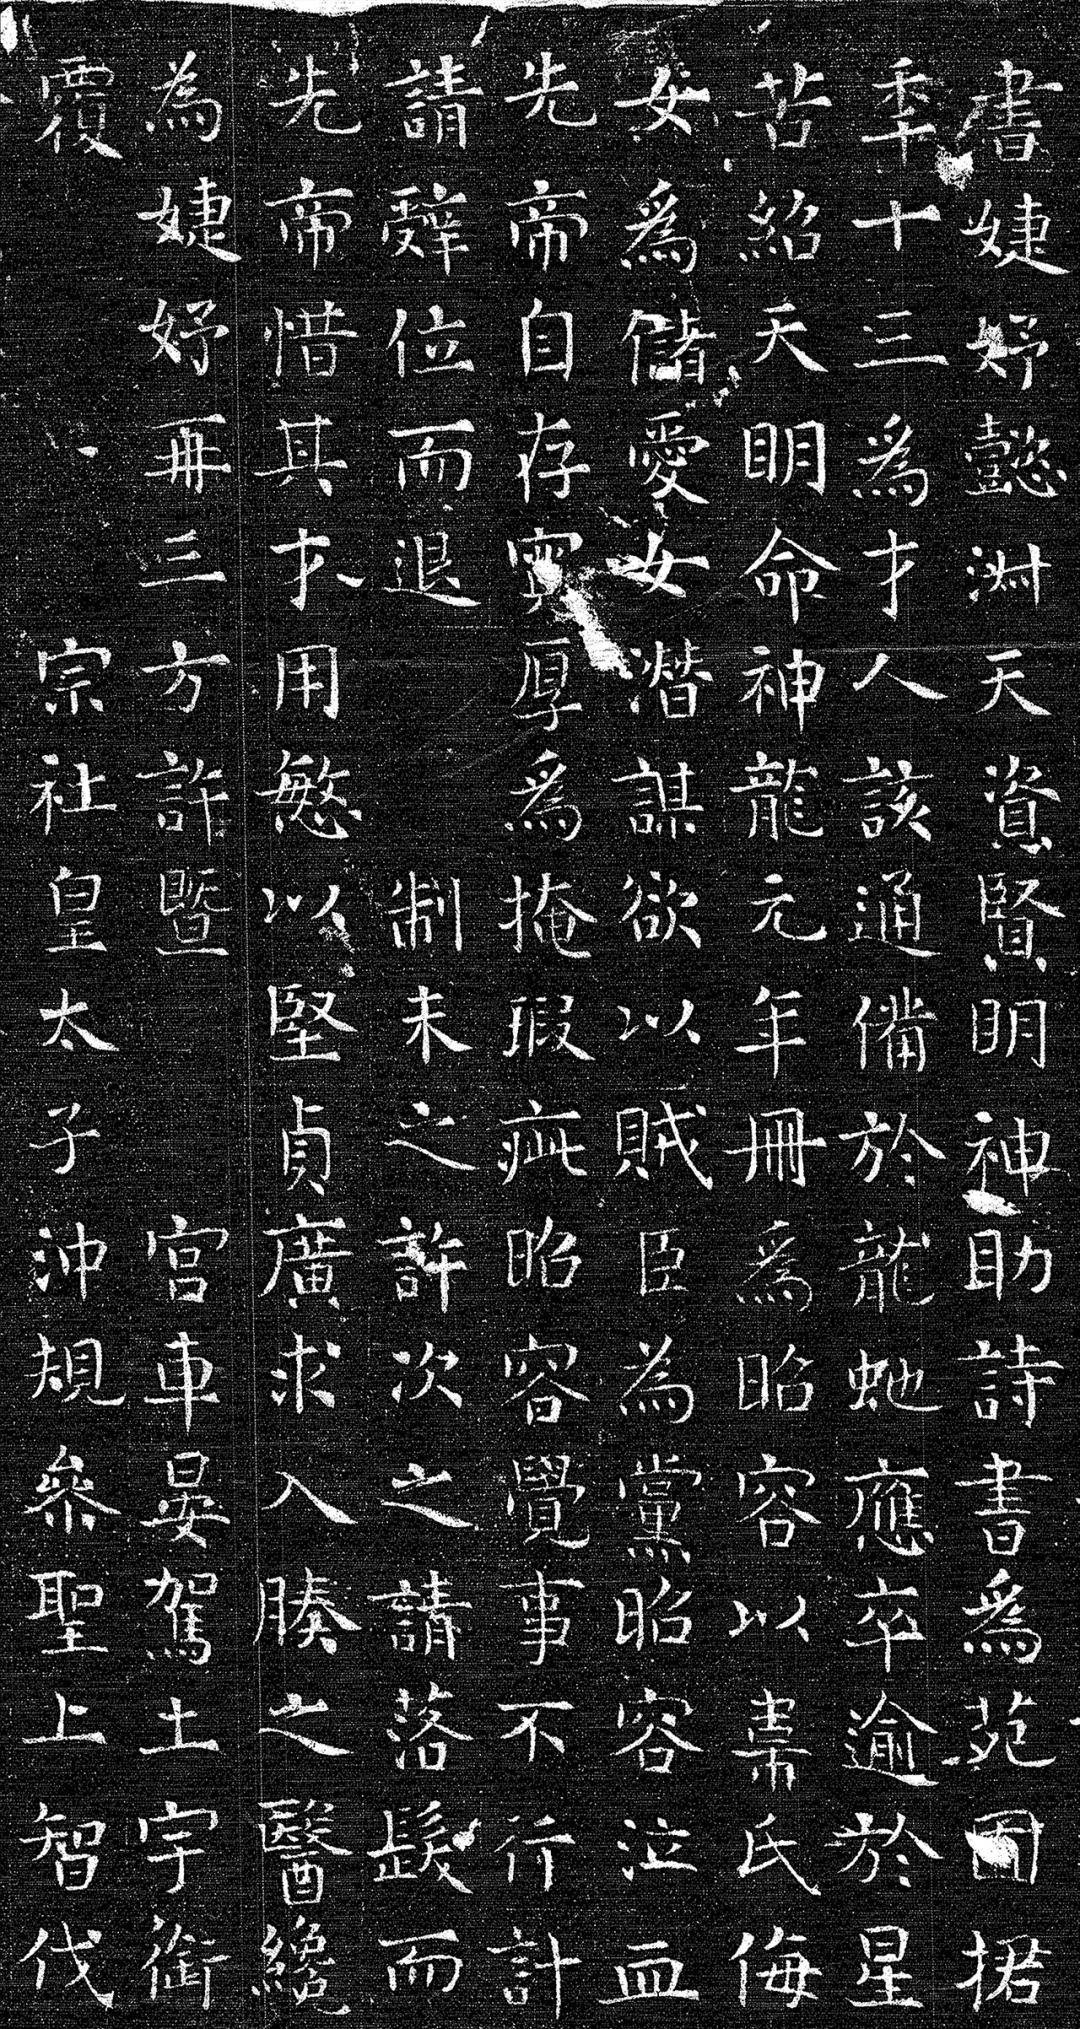 書婕妤懿淑天資賢明神助詩書爲苑囿捃
年十三爲才人該通備於龍虵應卒逾於星
苦紹天明命神龍元年冊爲昭容以韋氏侮
女爲儲愛女潛謀欲以賊臣為黨昭容泣血
先帝自存寬厚爲掩瑕疵昭容覺事不行計
請辭位而退　制未之許次之請落髮而
先帝惜其才用慜以堅貞廣求入腠之醫纔
為婕妤再三方許暨　宮車晏駕土宇銜
覆　宗社皇太子沖規參聖上智伐